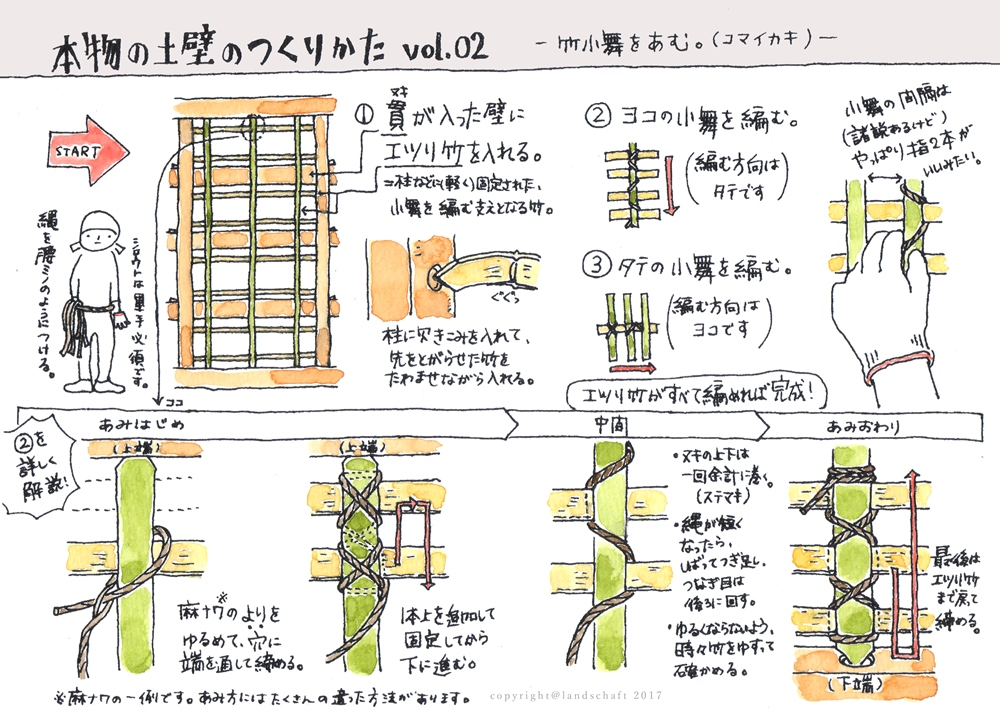 本物の土壁のつくりかた vol.02
－竹小舞をあむ。(コマイカキ)－
START
縄を腰ミノのようにつける。
シロウトは軍手必須です。
ココ
ヌキ
①貫が入った壁に
エツリ竹を入れる。
=柱などに(軽く)固定された、
小舞を編む支えとなる竹。
ぐぐっ
柱に欠きこみを入れて、
先をとがらせた竹を
たわませながら入れる。
②ヨコの小舞を編む。
(編む方向は
タテです)
③タテの小舞を編む。
(編む方向は
ヨコです)
エツリ竹がすべて編めれば完成!
小舞の間隔は
(諸説あるけど)
やっぱり指2本が
いいみたい。
②を
詳しく
解説!
あみはじめ
中間
あみおわり
(上端)
※
麻ナワのよりを
ゆるめて、穴に
端を通して締める。
(上端)
1本上を追加して
固定してから
下に進む。
・ヌキの上下は
一回余計に巻く。
(ステマキ)
・縄が短く
なったら、
しばってつぎ足し、
つなぎ目は
後ろに回す。
・ゆるくならないよう、
時々竹をゆすって
確かめる。
最後は
エツリ竹
まで戻って
締める。
(下端)
※麻ナワの一例です。あみ方にはたくさんの違った方法があります。
copyright@landschaft 2017